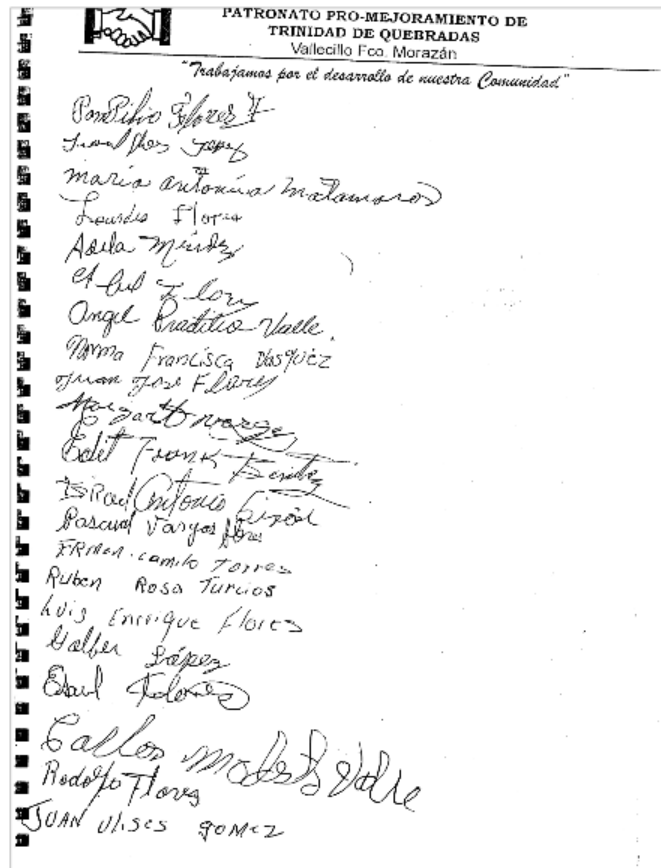 PATRONATO PRO-MEJORAMIENTO DE
TRINIDAD DE QUEBRADAS
Vallecillo Fco. Morazán
"Trabajamos por el desarrollo de nuestra Comunidad"
PomPilio Flores
maria antonina matamoros
Lourdes Flores
Adela Méndez
Angel Valle.
Norma Francisca Vasquez
Juan Jose Flores
Edit Frank Benitez
Antonio
Pascual Vargas flores
camilo Torres
Ruben Rosa Turcios
Luis Enrique flores
López
Esaul Flores
Carlos Valle
Rodolfo Flores
JUAN Ulises gomez